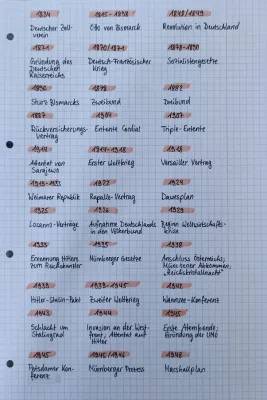 1834 1815 - 1898 1848/1849
Deutscher Zoll- Otto von Bismarck Revolution in Deutschland
verein
1871 1870/1871 1878-1890
Gründung des Deutsch-Französischer Sozialistengesetze
Deutschen Krieg
Kaiserreichs
1890 1879 1882
Sturz Bismarcks Zweibund Dreibund
1887 1904 1907
Rückversicherungs- Entente Cordial Triple-Entente
Vertrag
1914 1914-1918
Attentat von Erster Weltkrieg Versailler Vertrag
Sarajewo
1919-1933 1922 1924
Weimarer Republik Rapallo-Vertrag Dawesplan
1925 1926 1929
Locarno-Verträge Aufnahme Deutschlands Beginn Weltwirtschafts-
in den Völkerbund krise
1933 1935 1938
Ernennung Hitlers Nürnberger Gesetze Anschluss Österreichs,
zum Reichskanzler Münchener Abkommen,
„Reichskristallnacht"
1939 1939-1945 1942
Hitler-Stalin-Pakt Zweiter Weltkrieg Wannsee-Konferenz
1943 1944 1945
Schlacht um Invasion an der West- Erste Atombombe,
Stalingrad front, Attentat auf Gründung der UNO
Hitler
1945 1945/1946
Potsdamer Kon- Nürnberger Prozess Marshallplan
ferenz